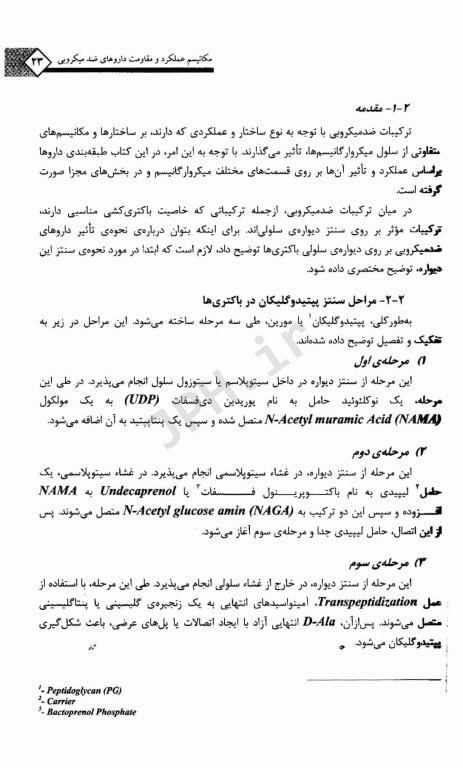 مکانیسم عملکرد و مقاومت داروهای ضد میکروبی
۲۳
۲-۱- مقدمه
ترکیبات ضدمیکروبی با توجه به نوع ساختار و عملکردی که دارند، بر ساختارها و مکانیسم‌های
متفاوتی از سلول میکروارگانیسم‌ها، تأثیر می‌گذارند. با توجه به این امر، در این کتاب طبقه‌بندی داروها
براساس عملکرد و تأثیر آن‌ها بر روی قسمت‌های مختلف میکروارگانیسم و در بخش‌های مجزا صورت
گرفته است.
در میان ترکیبات ضدمیکروبی، ازجمله ترکیباتی که خاصیت باکتری‌کشی مناسبی دارند،
ترکیبات مؤثر بر روی سنتز دیواره‌ی سلولی‌اند. برای اینکه بتوان درباره‌ی نحوه‌ی تأثیر داروهای
ضدمیکروبی بر روی دیواره‌ی سلولی باکتری‌ها توضیح داد، لازم است که ابتدا در مورد نحوه‌ی سنتز این
دیواره، توضیح مختصری داده شود.
۲-۲- مراحل سنتز پپتیدوگلیکان در باکتری‌ها
به‌طورکلی، پپتیدوگلیکان۱ یا مورین، طی سه مرحله ساخته می‌شود. این مراحل در زیر به
تفکیک و تفصیل توضیح داده شده‌اند.
۱) مرحله‌ی اول
این مرحله از سنتز دیواره در داخل سیتوپلاسم یا سیتوزول سلول انجام می‌پذیرد. در طی این
مرحله، یک نوکلئوتید حامل به نام یوریدین دی‌فسفات (UDP) به یک مولکول
N-Acetyl muramic Acid (NAMA) متصل شده و سپس یک پنتاپپتید به آن اضافه می‌شود.
۲) مرحله‌ی دوم
این مرحله از سنتز دیواره، در غشاء سیتوپلاسمی انجام می‌پذیرد. در غشاء سیتوپلاسمی، یک
حامل۲ لیپیدی به نام باکتوپرینول فسفات۳ یا Undecaprenol به NAMA
افزوده و سپس این دو ترکیب به N-Acetyl glucose amin (NAGA) متصل می‌شوند. پس
از این اتصال، حامل لیپیدی جدا و مرحله‌ی سوم آغاز می‌شود.
۳) مرحله‌ی سوم
این مرحله از سنتز دیواره، در خارج از غشاء سلولی انجام می‌پذیرد. طی این مرحله، با استفاده از
عمل Transpeptidization، آمینواسیدهای انتهایی به یک زنجیره‌ی گلیسینی یا پنتاگلیسینی
متصل می‌شوند. پس‌ازآن، D-Ala انتهایی آزاد با ایجاد اتصالات یا پل‌های عرضی، باعث شکل‌گیری
پپتیدوگلیکان می‌شود.
1- Peptidoglycan (PG)
2- Carrier
3- Bactoprenol Phosphate